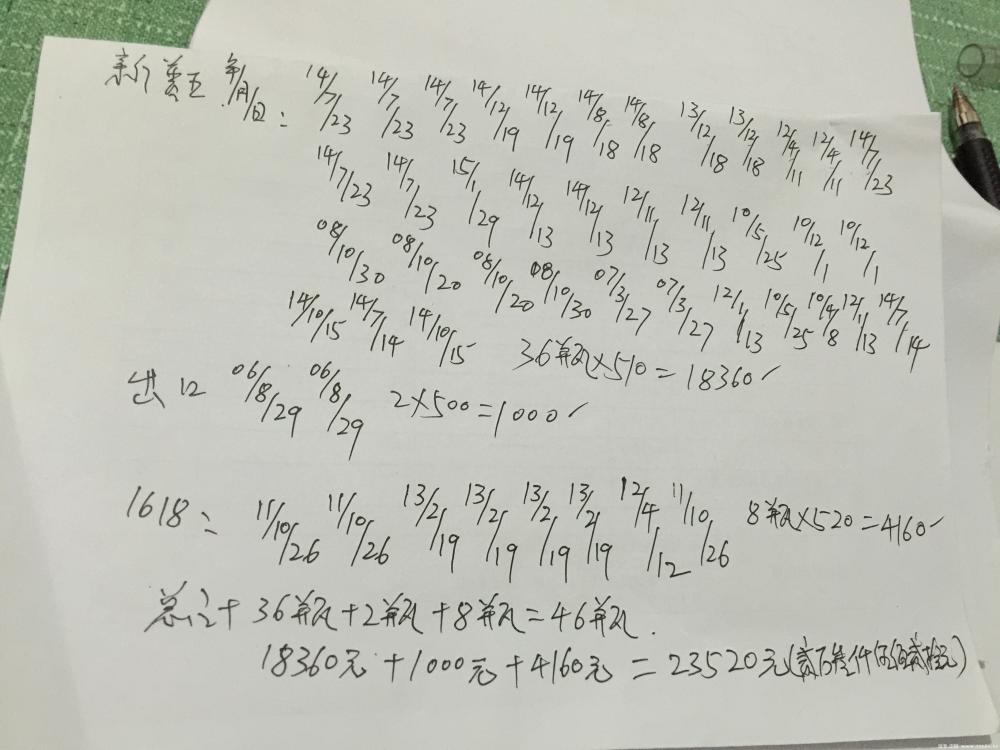 新 年/月/日： 14/7/23 14/7/23 14/7/23 14/12/19 14/12/19 14/8/18 14/8/18 13/12/18 13/12/18 12/4/11 12/4/11 14/7/23
14/7/23 14/7/23 15/1/29 14/12/13 14/12/13 12/11/13 12/11/13 10/5/25 10/12/1 10/12/1
08/10/30 08/10/20 08/10/20 08/10/30 07/3/27 07/3/27 12/11/13 10/5/25 10/4/8 12/11/13 14/7/14
14/10/15 14/7/14 14/10/15 36瓶×510=18360✓
出口 06/8/29 06/8/29 2×500=1000✓
1618： 11/10/26 11/10/26 13/2/19 13/2/19 13/2/19 13/2/19 12/4/12 11/10/26 8瓶×520=4160✓
总计+36瓶+2瓶+8瓶=46瓶.
18360元+1000元+4160元=23520元(贰万叁仟伍佰贰拾元)